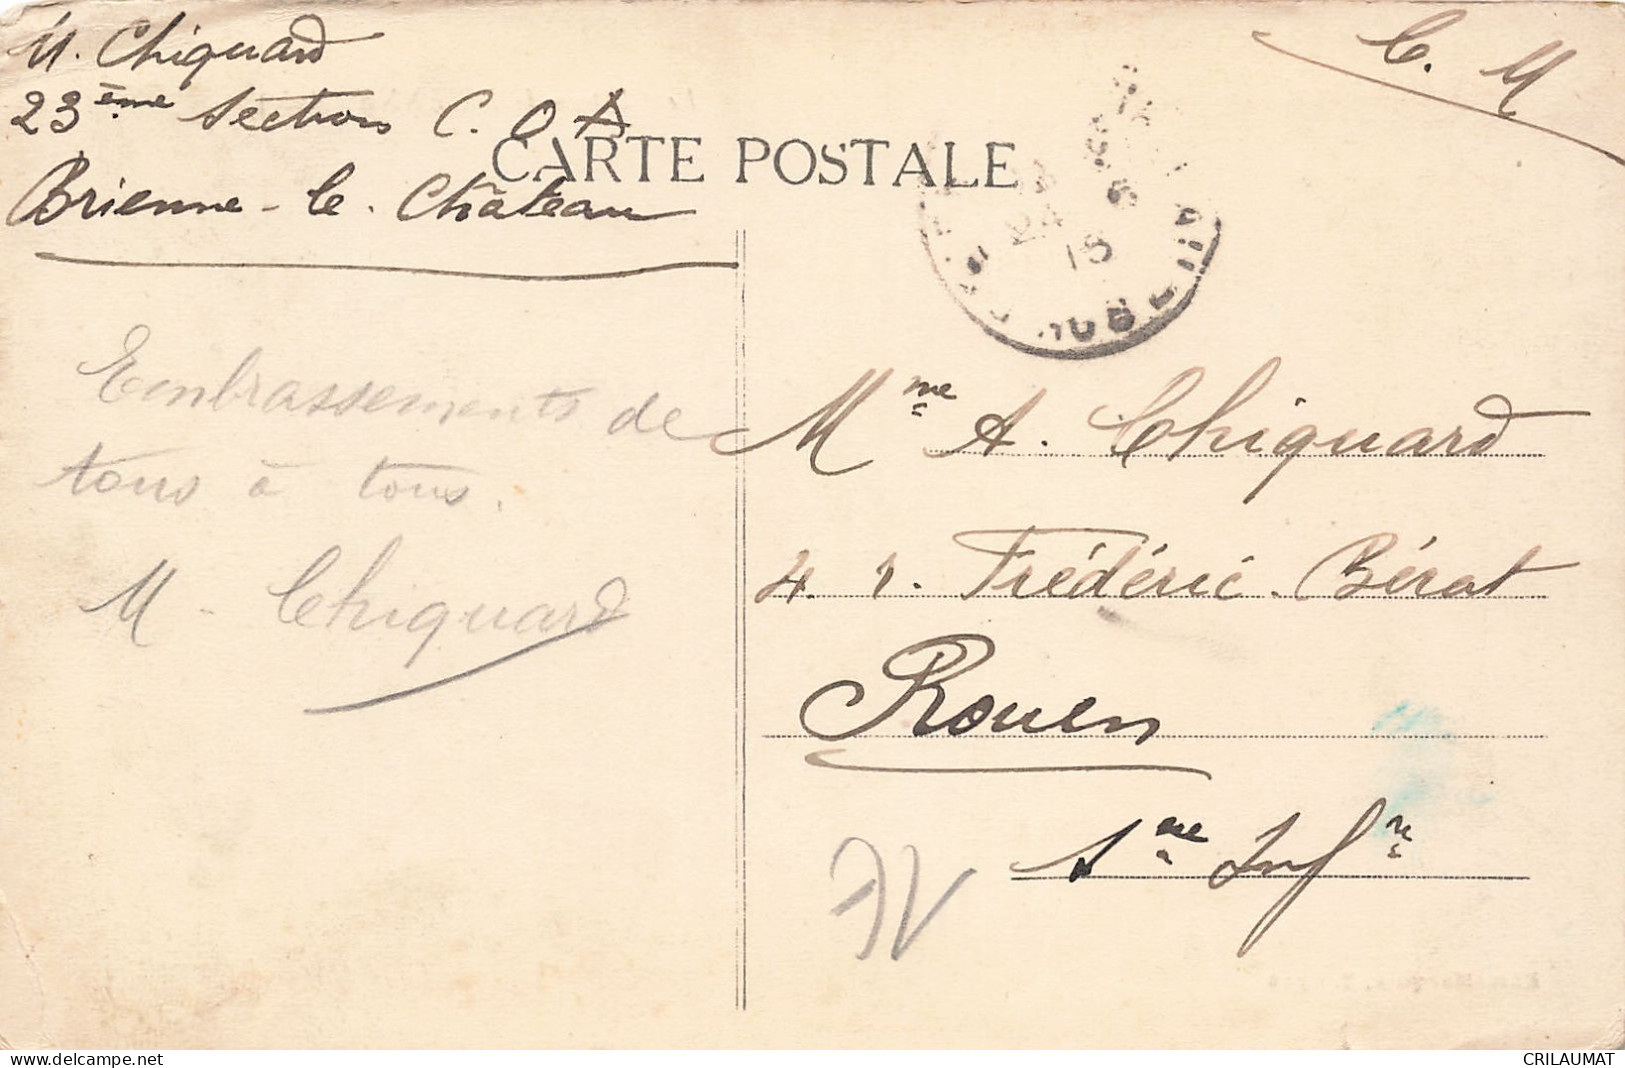 M. Chiquard
23ème Section C.O.A
Brienne-le-Château
C. M
CARTE POSTALE
18
Embrassements de
tous à tous.
M. Chiquard
Mme A. Chiquard
4. r. Frédéric Bérat
Rouen
Sne Infre
delcampe.net
CRILAUMAT